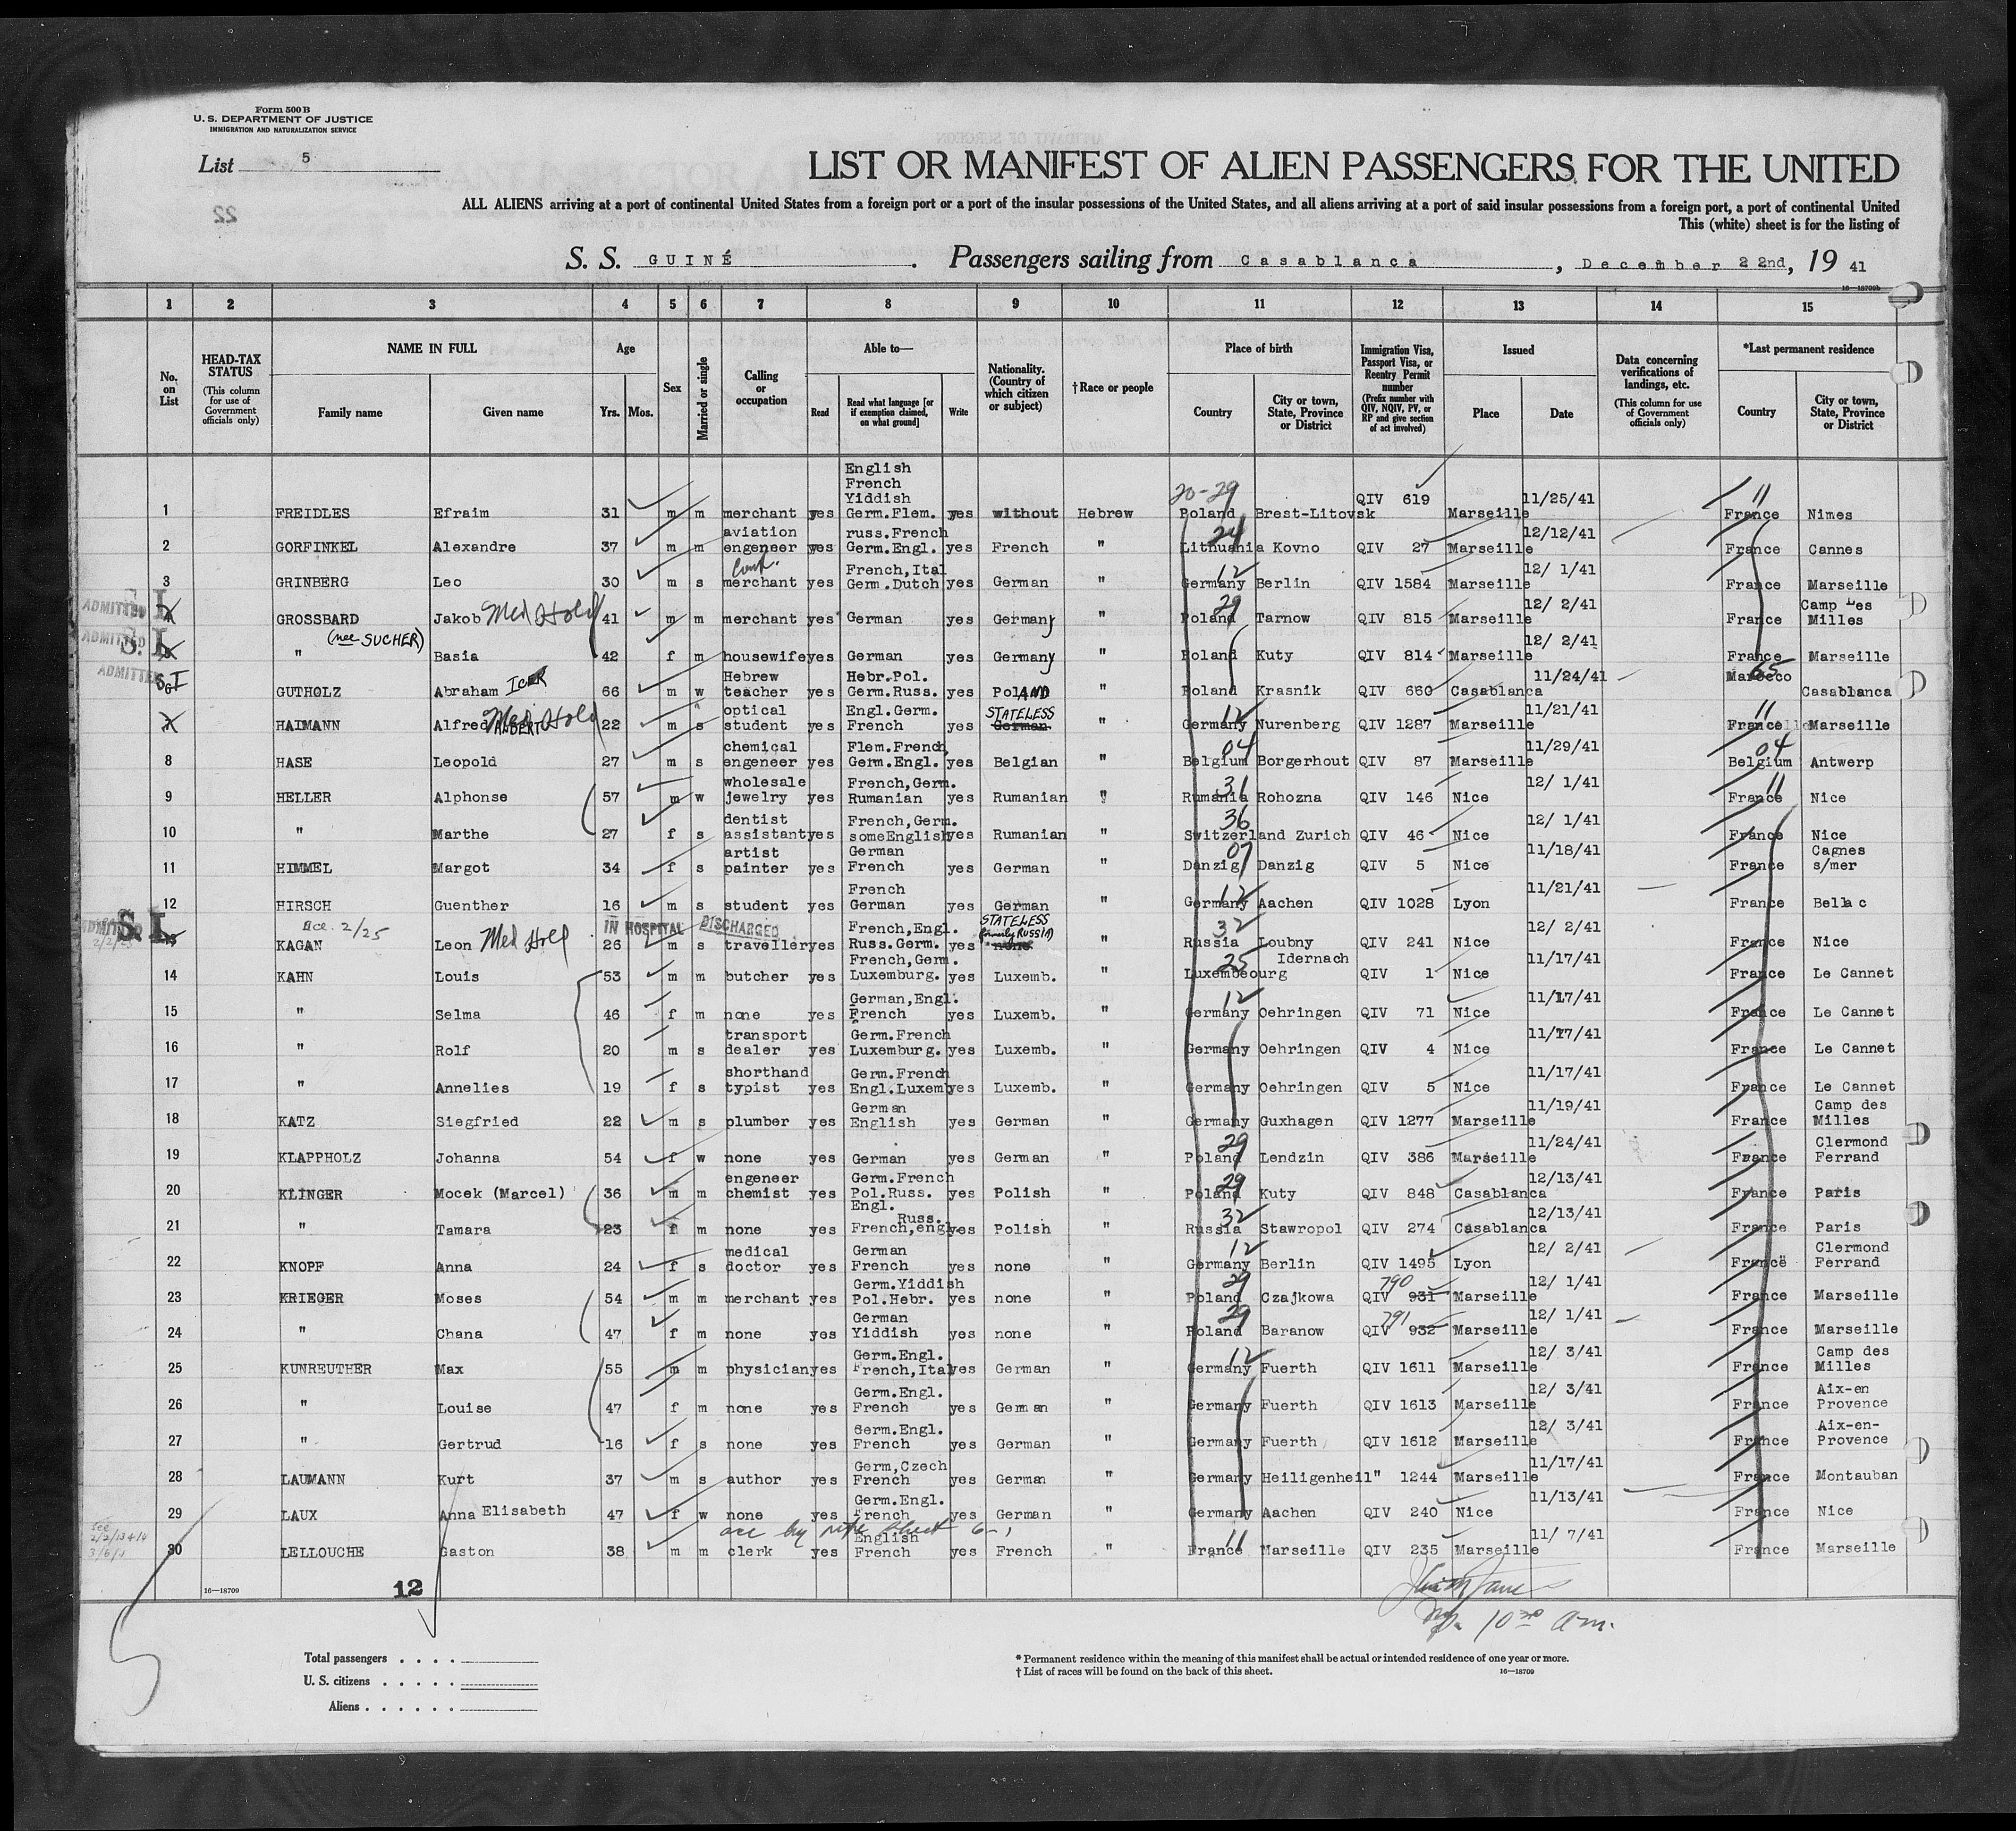 Form 500 B
U. S. DEPARTMENT OF JUSTICE
IMMIGRATION AND NATURALIZATION SERVICE
List 5
LIST OR MANIFEST OF ALIEN PASSENGERS FOR THE UNITED
ALL ALIENS arriving at a port of continental United States from a foreign port or a port of the insular possessions of the United States, and all aliens arriving at a port of said insular possessions from a foreign port, a port of continental United
This (white) sheet is for the listing of
22
S. S. GUINÉ. Passengers sailing from Casablanca, December 22nd, 19 41
16—18709b
1 2 3 4 5 6 7 8 9 10 11 12 13 14 15
No. on List
HEAD-TAX STATUS (This column for use of Government officials only)
NAME IN FULL Family name Given name
Age Yrs. Mos.
Sex
Married or single
Calling or occupation
Able to— Read Read what language [or if exemption claimed, on what ground] Write
Nationality. (Country of which citizen or subject)
†Race or people
Place of birth Country City or town, State, Province or District
Immigration Visa, Passport Visa, or Reentry Permit number (Prefix number with QIV, NQIV, PV, or RP and give section of act involved)
Issued Place Date
Data concerning verifications of landings, etc. (This column for use of Government officials only)
*Last permanent residence Country City or town, State, Province or District
1 FREIDLES Efraim 31 m m merchant yes English French Yiddish Germ.Flem. yes without Hebrew 20-29 Poland Brest-Litovsk QIV 619 Marseille 11/25/41 11 France Nimes
2 GORFINKEL Alexandre 37 m m aviation engeneer yes russ.French Germ.Engl. yes French " 24 Lithuania Kovno QIV 27 Marseille 12/12/41 France Cannes
3 GRINBERG Leo 30 m s merchant yes French,Ital Germ.Dutch yes German " 12 Germany Berlin QIV 1584 Marseille 12/ 1/41 France Marseille
ADMITTED S.I. GROSSBARD Jakob Med Hold 41 m m merchant yes German yes Germany " 29 Poland Tarnow QIV 815 Marseille 12/ 2/41 France Camp Les Milles
ADMITTED S.I. " (nee SUCHER) Basia 42 f m housewife yes German yes Germany " Poland Kuty QIV 814 Marseille 12/ 2/41 France Marseille
ADMITTED SI 6 GUTHOLZ Abraham ICER 66 m w Hebrew teacher yes Hebr.Pol. Germ.Russ. yes PolAND " Poland Krasnik QIV 660 Casablanca 11/24/41 65 Marocco Casablanca
HAIMANN Alfred ALBERT Med Hold 22 m s optical student yes Engl.Germ. French yes STATELESS German " 12 Germany Nurenberg QIV 1287 Marseille 11/21/41 11 France Marseille
8 HASE Leopold 27 m s chemical engeneer yes Flem.French Germ.Engl. yes Belgian " 04 Belgium Borgerhout QIV 87 Marseille 11/29/41 04 Belgium Antwerp
9 HELLER Alphonse 57 m w wholesale jewelry yes French,Germ. Rumanian yes Rumanian " 31 Rumania Rohozna QIV 146 Nice 12/ 1/41 11 France Nice
10 " Marthe 27 f s dentist assistant yes French,Germ. someEnglish yes Rumanian " 36 Switzerland Zurich QIV 46 Nice 12/ 1/41 France Nice
11 HIMMEL Margot 34 f s artist painter yes German French yes German " 07 Danzig Danzig QIV 5 Nice 11/18/41 France Cagnes s/mer
12 HIRSCH Guenther 16 m s student yes French German yes German " 12 Germany Aachen QIV 1028 Lyon 11/21/41 France Bellac
ADMITTED S.I. 13 KAGAN 2/25 Leon Med Hold IN HOSPITAL DISCHARGED 26 m s traveller yes French,Engl. Russ.Germ. yes STATELESS (formerly RUSSIA) none " 32 Russia Loubny QIV 241 Nice 12/ 2/41 France Nice
14 KAHN Louis 53 m m butcher yes French,Germ. Luxemburg. yes Luxemb. " 25 Luxembeourg Idernach QIV 1 Nice 11/17/41 France Le Cannet
15 " Selma 46 f m none yes German,Engl. French yes Luxemb. " 12 Germany Oehringen QIV 71 Nice 11/17/41 France Le Cannet
16 " Rolf 20 m s transport dealer yes Germ.French Luxemburg. yes Luxemb. " Germany Oehringen QIV 4 Nice 11/17/41 France Le Cannet
17 " Annelies 19 f s shorthand typist yes Germ.French Engl.Luxemb yes Luxemb. " Germany Oehringen QIV 5 Nice 11/17/41 France Le Cannet
18 KATZ Siegfried 22 m s plumber yes German English yes German " Germany Guxhagen QIV 1277 Marseille 11/19/41 France Camp des Milles
19 KLAPPHOLZ Johanna 54 f w none yes German yes German " 29 Poland Lendzin QIV 386 Marseille 11/24/41 France Clermond Ferrand
20 KLINGER Mocek (Marcel) 36 m m engeneer chemist yes Germ.French Pol.Russ. Engl. yes Polish " 29 Poland Kuty QIV 848 Casablanca 12/13/41 France Paris
21 " Tamara 23 f m none yes Russ. French,engl. yes Polish " 32 Russia Stawropol QIV 274 Casablanca 12/13/41 France Paris
22 KNOPF Anna 24 f s medical doctor yes German French yes none " 12 Germany Berlin QIV 1495 Lyon 12/ 2/41 France Clermond Ferrand
23 KRIEGER Moses 54 m m merchant yes Germ.Yiddish Pol.Hebr. yes none " 29 Poland Czajkowa QIV 931 790 Marseille 12/ 1/41 France Marseille
24 " Chana 47 f m none yes German Yiddish yes none " 29 Poland Baranow QIV 932 791 Marseille 12/ 1/41 France Marseille
25 KUNREUTHER Max 55 m m physician yes Germ.Engl. French,Ital yes German " 12 Germany Fuerth QIV 1611 Marseille 12/ 3/41 France Camp des Milles
26 " Louise 47 f m none yes Germ.Engl. French yes German " Germany Fuerth QIV 1613 Marseille 12/ 3/41 France Aix-en Provence
27 " Gertrud 16 f s none yes Germ.Engl. French yes German " Germany Fuerth QIV 1612 Marseille 12/ 3/41 France Aix-en-Provence
28 LAUMANN Kurt 37 m s author yes Germ,Czech French yes German " Germany Heiligenheil" 1244 Marseille 11/17/41 France Montauban
29 LAUX Anna Elisabeth 47 f w none yes Germ.Engl. French yes German " Germany Aachen QIV 240 Nice 11/13/41 France Nice
30 LELLOUCHE Gaston 38 m m clerk yes English French yes French " 11 France Marseille QIV 235 Marseille 11/ 7/41 France Marseille
16—18709
12
10 30 am.
Total passengers
U. S. citizens
Aliens
* Permanent residence within the meaning of this manifest shall be actual or intended residence of one year or more.
† List of races will be found on the back of this sheet.
16—18709